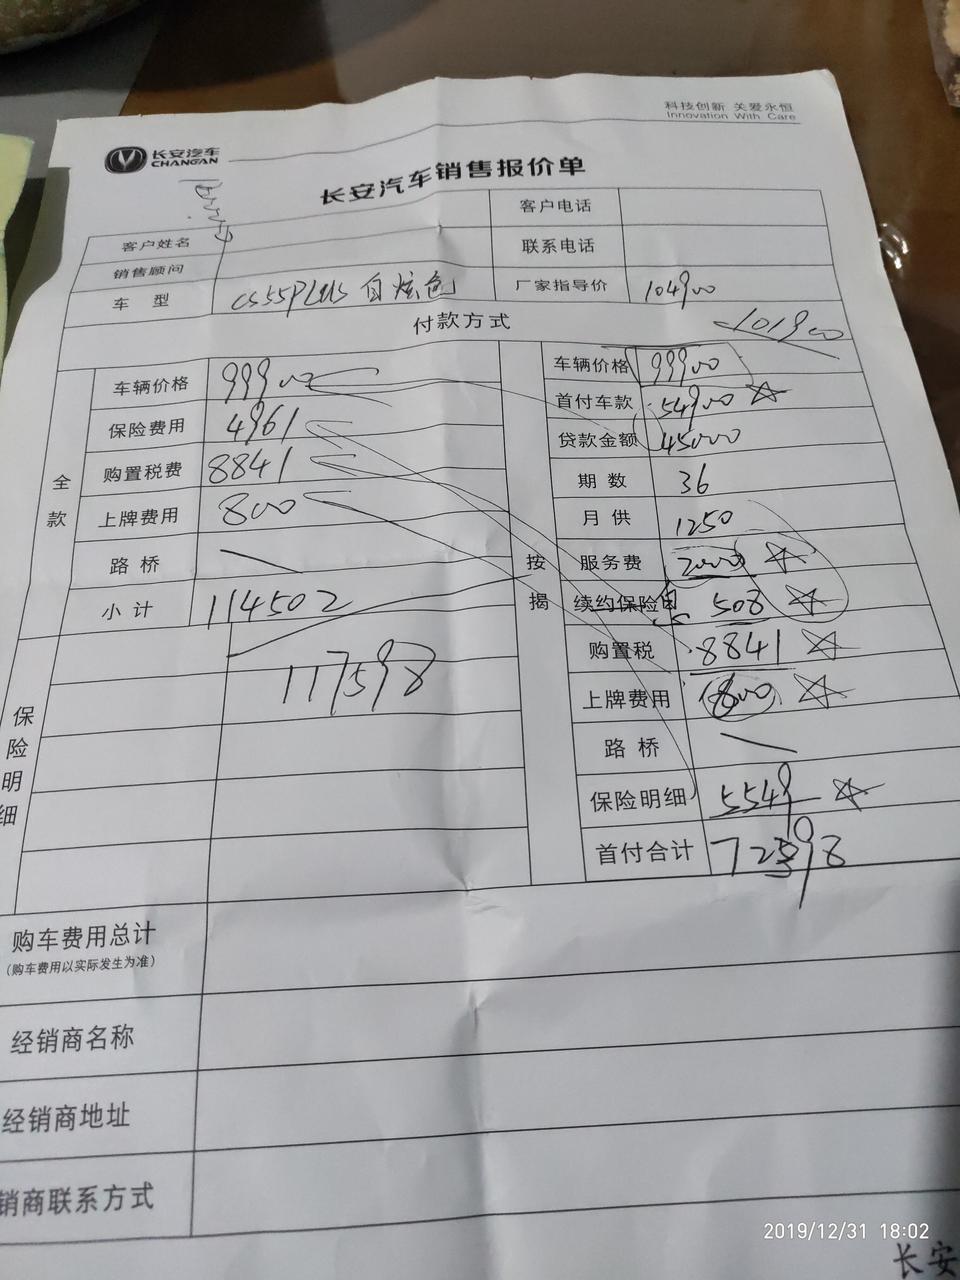 科技创新 关爱永恒
Innovation With Care
长安汽车
CHANGAN
长安汽车销售报价单
客户姓名
客户电话
销售顾问
联系电话
车 型 CS55PLUS 自炫色 厂家指导价 104900
付款方式 101900
全款
车辆价格 99900
保险费用 4961
购置税费 8841
上牌费用 800
路桥
小计 114502
按揭
车辆价格 99900
首付车款 54900
贷款金额 45000
期数 36
月供 1250
服务费 2000
续约保险 508
购置税 8841
上牌费用 800
路桥
保险明细 5549
首付合计 72598
保险明细
117598
购车费用总计
(购车费用以实际发生为准)
经销商名称
经销商地址
销商联系方式
2019/12/31 18:02
长安